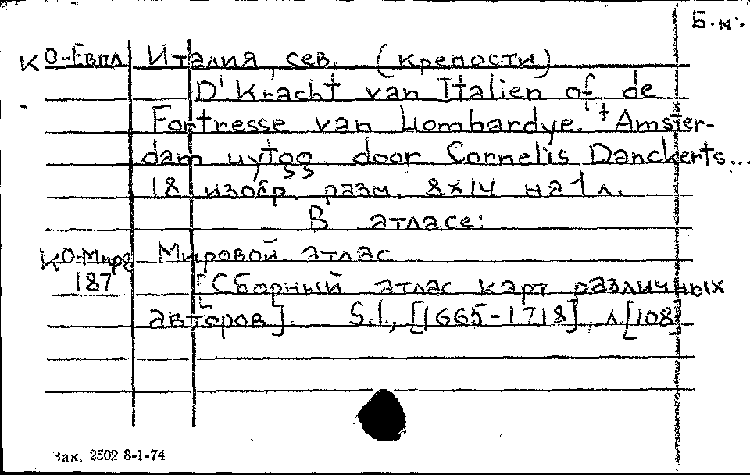 Б.м.
КО-Евпл Италия, сев. (крепости)
D'Kracht van Italien of de
Fortresse van Lombardye. 't Amster-
dam uytgg. door Cornelis Danckerts...
18 изобр. разм. 8×14 на 1 л.
В атласе:
КО-Мирв Мировой атлас
187 [Сборный атлас карт различных
авторов]. S.l., [1665-1718], л[108]
Зак. 2502 8-1-74